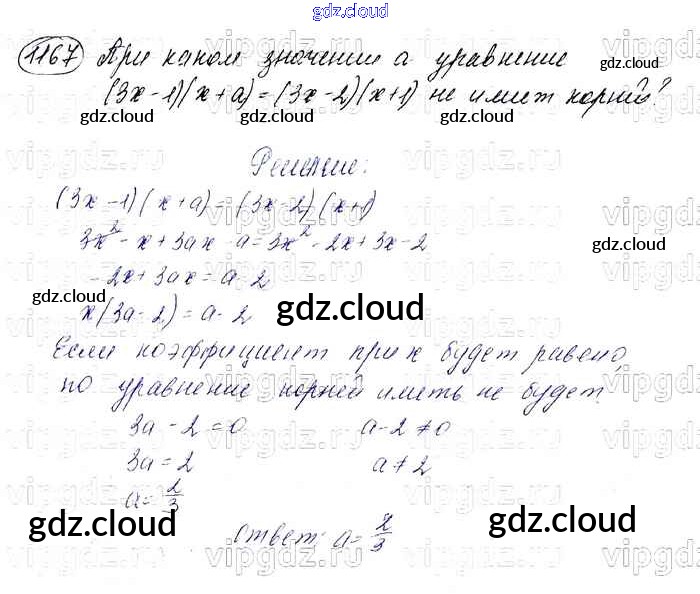 gdz.cloud
1167 При каком значении a уравнение gdz.cloud
(3x-1)(x+a)=(3x-2)(x+1) не имеет корней?
gdz.cloud gdz.cloud gdz.cloud
Решение:
(3x-1)(x+a)=(3x-2)(x+1)
3x²-x+3ax-a=3x²-2x+3x-2
gdz.cloud
-2x+3ax=a-2
gdz.cloud
x(3a-2)=a-2
gdz.cloud gdz.cloud
Если коэффициент при x будет равен 0,
то уравнение корней иметь не будет.
3a-2=0 a-2≠0
3a=2 a≠2
a=2/3
gdz.cloud gdz.cloud gdz.cloud
Ответ: a=2/3
vipgdz.ru